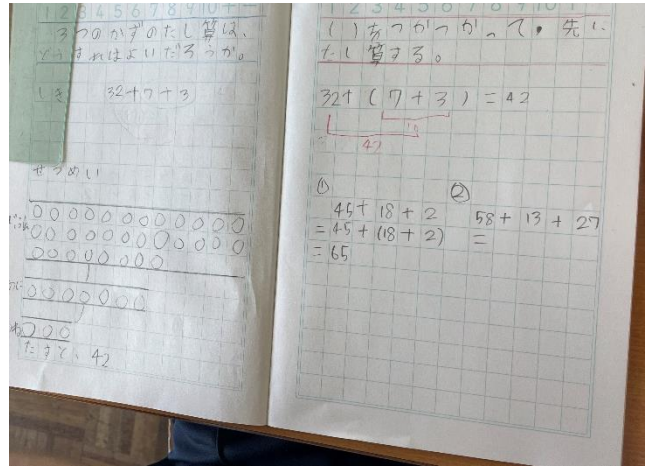 1 2 3 4 5 6 7 8 9 10 + −
3つのかずのたし算は、
どうすればよいだろうか。
しき 32+7+3
せつめい
たすと、42
1 2 3 4 5 6 7 8 9 10 +
( )をつかって、先に
たし算する。
32+(7+3)=42
10
42
① ②
45+18+2
=45+(18+2)
=65
58+13+27
=